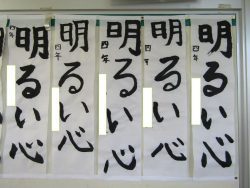 明るい心
四年
明るい心
四年
明るい心
四年
明るい心
四年
明るい心
四年